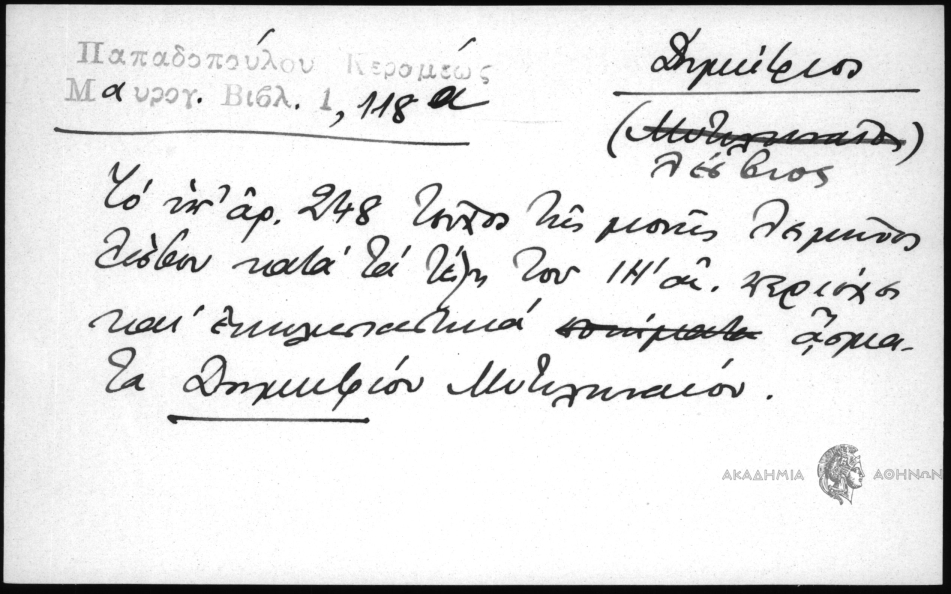 Παπαδοπούλου Κεραμέως
Μαυρογ. Βιβλ. 1, 118 α
Δημήτριος
(Μυτιληναῖος)
Λέσβιος
Τό ὑπ' ἀρ. 248 τεῦχος τῆς μονῆς Λειμῶνος
Λέσβου κατά τά τέλη τοῦ ΙΗ' αἰ. περιέχει
καί ἐκκλησιαστικά ποιήματα ᾄσμα-
τα Δημητρίου Μυτιληναίου.
ΑΚΑΔΗΜΙΑ ΑΘΗΝΩΝ